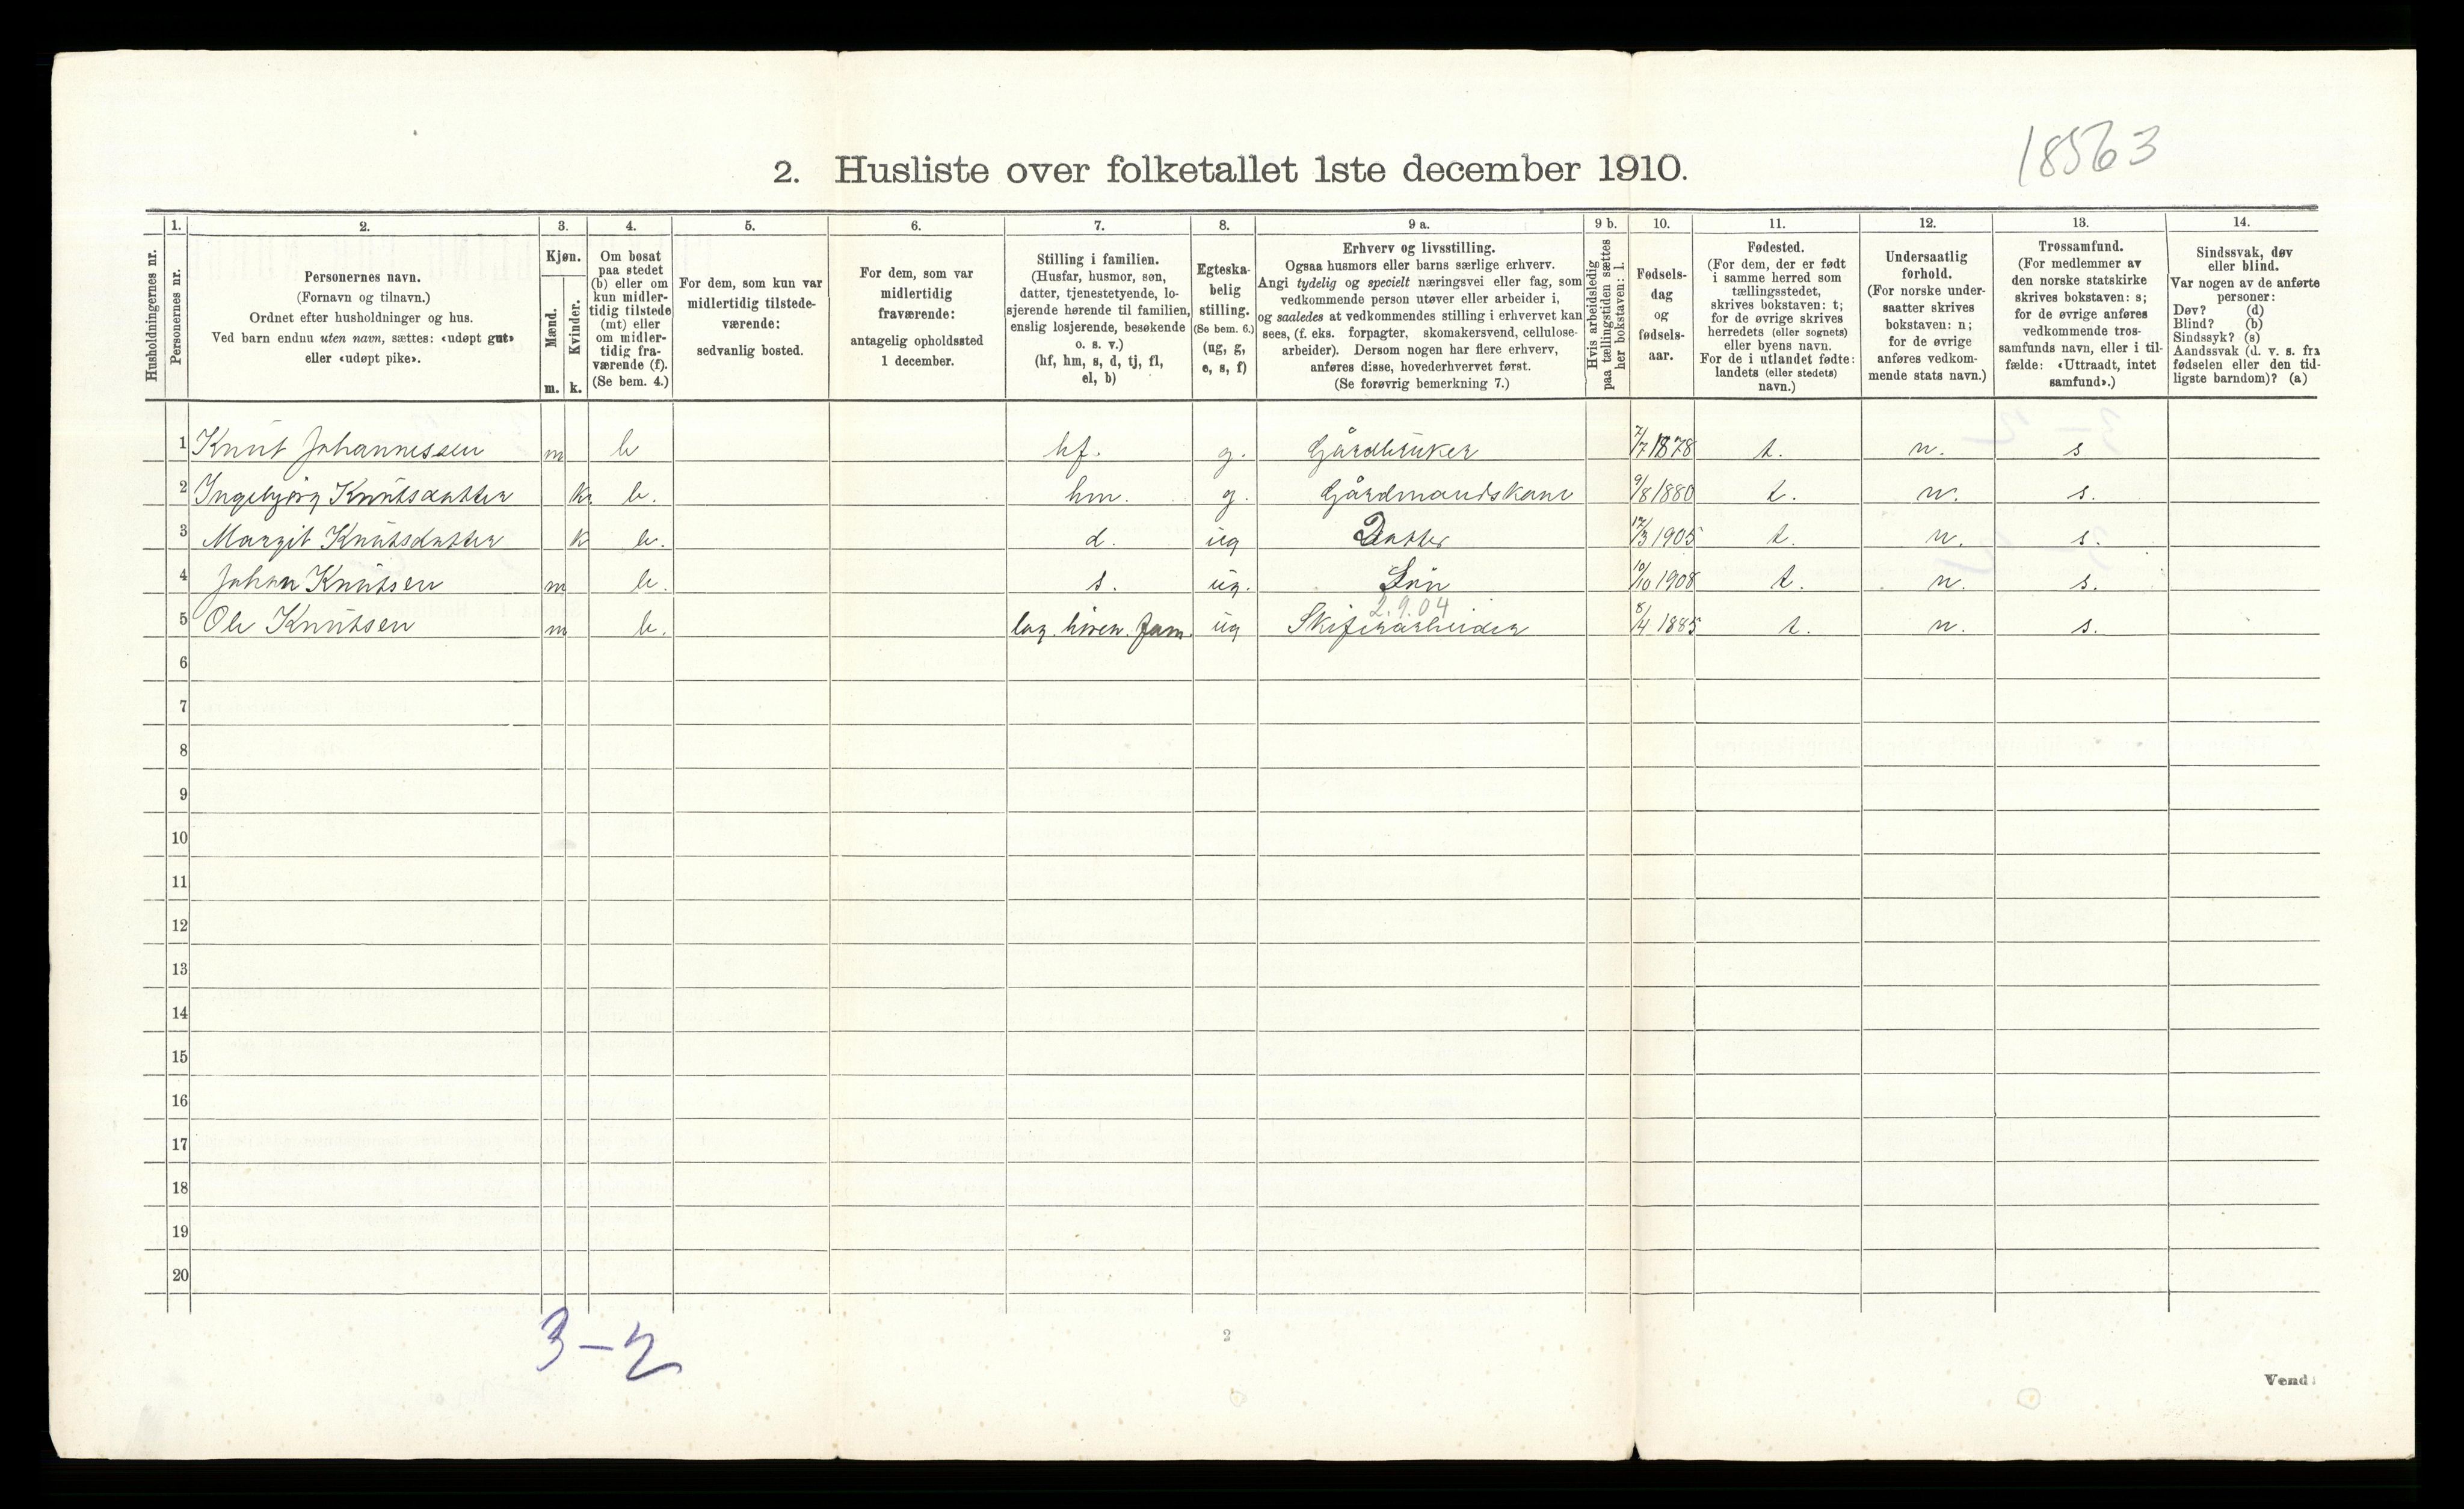 18563
2. Husliste over folketallet 1ste december 1910.
Husholdningernes nr.
1.
Personernes nr.
2.
Personernes navn.
(Fornavn og tilnavn.)
Ordnet efter husholdninger og hus.
Ved barn endnu uten navn, sættes: «udøpt gut»
eller «udøpt pike».
3.
Kjøn.
Mænd.
m.
Kvinder.
k.
4.
Om bosat
paa stedet
(b) eller om
kun midler-
tidig tilstede
(mt) eller
om midler-
tidig fra-
værende (f).
(Se bem. 4.)
5.
For dem, som kun var
midlertidig tilstede-
værende:
sedvanlig bosted.
6.
For dem, som var
midlertidig
fraværende:
antagelig opholdssted
1 december.
7.
Stilling i familien.
(Husfar, husmor, søn,
datter, tjenestetyende, lo-
sjerende hørende til familien,
enslig losjerende, besøkende
o. s. v.)
(hf, hm, s, d, tj, fl,
el, b)
8.
Egteska-
belig
stilling.
(Se bem. 6.)
(ug, g,
e, s, f)
9 a.
Erhverv og livsstilling.
Ogsaa husmors eller barns særlige erhverv.
Angi tydelig og specielt næringsvei eller fag, som
vedkommende person utøver eller arbeider i,
og saaledes at vedkommendes stilling i erhvervet kan
sees, (f. eks. forpagter, skomakersvend, cellulose-
arbeider). Dersom nogen har flere erhverv,
anføres disse, hovederhvervet først.
(Se forøvrig bemerkning 7.)
9 b.
Hvis arbeidsledig
paa tællingstiden sættes
her bokstaven: l.
10.
Fødsels-
dag
og
fødsels-
aar.
11.
Fødested.
(For dem, der er født
i samme herred som
tællingsstedet,
skrives bokstaven: t;
for de øvrige skrives
herredets (eller sognets)
eller byens navn.
For de i utlandet fødte:
landets (eller stedets)
navn.)
12.
Undersaatlig
forhold.
(For norske under-
saatter skrives
bokstaven: n;
for de øvrige
anføres vedkom-
mende stats navn.)
13.
Trossamfund.
(For medlemmer av
den norske statskirke
skrives bokstaven: s;
for de øvrige anføres
vedkommende tros-
samfunds navn, eller i til-
fælde: «Uttraadt, intet
samfund».)
14.
Sindssvak, døv
eller blind.
Var nogen av de anførte
personer:
Døv? (d)
Blind? (b)
Sindssyk? (s)
Aandssvak (d. v. s. fra
fødselen eller den tid-
ligste barndom)? (a)
1 Knut Johannessen m b hf. g. Gårdbruker 7/7 1878 t. n. s
2 Ingebjörg Knutsdatter k. b. hm. g. Gårdmandskone 9/8 1880 t. n. s.
3 Margit Knutsdatter k b. d. ug Datter 17/3 1905 t. n. s.
4 Johan Knutsen m b. s. ug. Sön 10/10 1908 t. n. s.
2.9.04
5 Ole Knutsen m b. fam. ug Skiferarbeider 8/4 1885 t. n. s.
6
7
8
9
10
11
12
13
14
15
16
17
18
19
20
3-2
2
Vend!